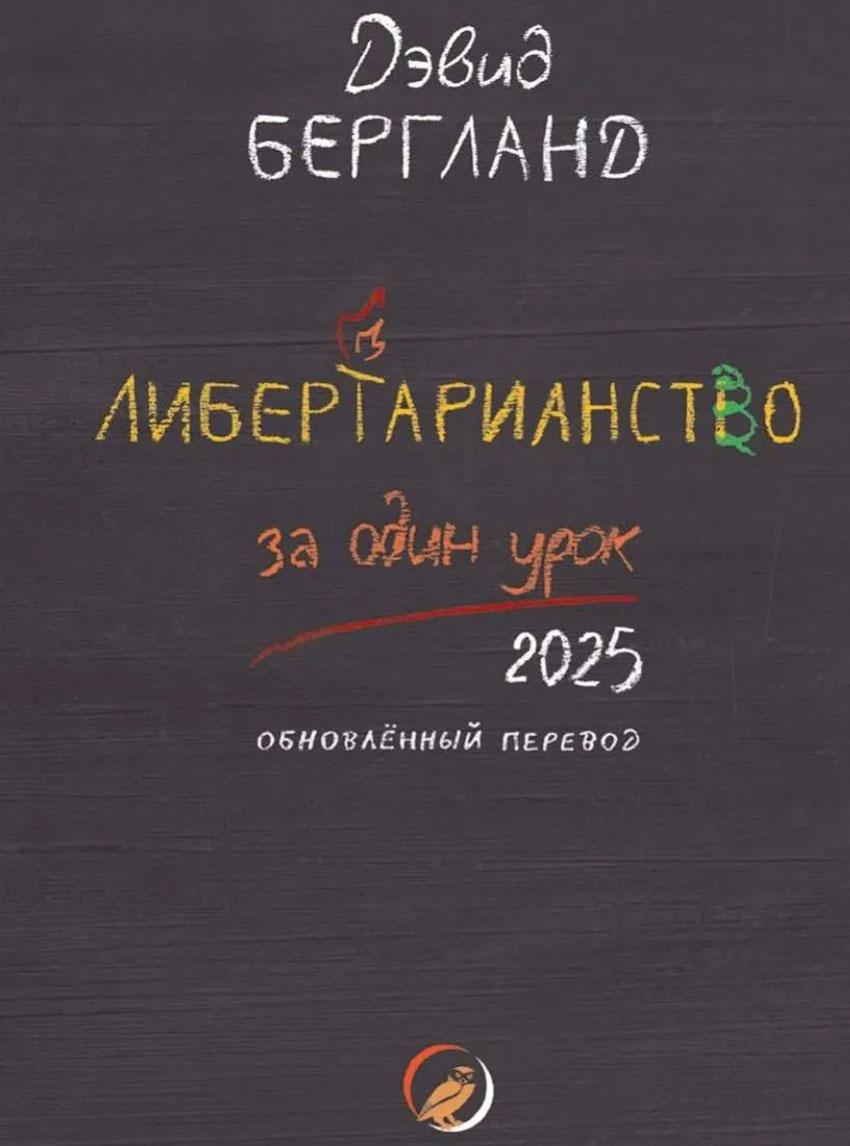 Дэвид
БЕРГЛАНД
ЛИБЕРТАРИАНСТВО
за один урок
2025
ОБНОВЛЁННЫЙ ПЕРЕВОД